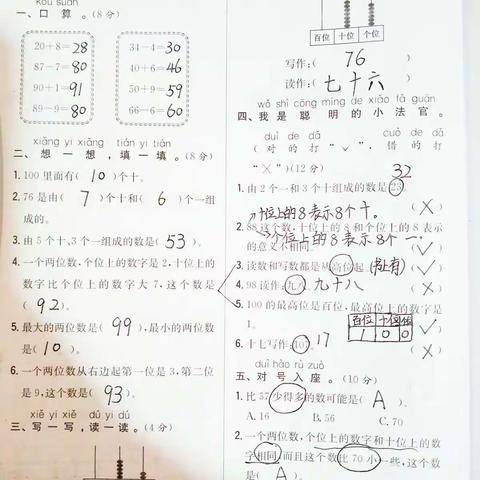 kǒu suàn
一、口算。(8分)
20+8=28 34-4=30
87-7=80 40+6=46
90+1=91 50+9=59
89-9=80 66-6=60
xiǎng yi xiǎng tián yi tián
二、想一想,填一填。(8分)
1. 100里面有( 10 )个十。
2. 76是由( 7 )个十和( 6 )个一组
成的。
3. 由5个十、3个一组成的数是( 53 )。
4. 一个两位数,个位上的数字是2,十位上的
数字比个位上的数字大7,这个数是
( 92 )。
5. 最大的两位数是( 99 ),最小的两位数
是( 10 )。
6. 一个两位数从右边起第一位是3,第二位
是9,这个数是( 93 )。
xiě yi xiě dú yi dú
三、写一写,读一读。(4分)
百位 十位 个位
写作:( 76 )
读作:( 七十六 )
wǒ shì cōng míng de xiǎo fǎ guān
四、我是聪明的小法官。
duì de dǎ cuò de dǎ
(对的打“✓”,错的打
“×”)(12分)
32
1. 由2个一和3个十组成的数是23。
(×)
十位上的8表示8个十。
2. 88这个数,十位上的8和个位上的8表示
个位上的8表示8个一.
的意义不相同。 (✓)
3. 读数和写数都是从高位起。(书上有) (✓)
4. 98读作:九八。 九十八 (×)
5. 100的最高位是百位,最高位上的数字是
1。 百位 十位 个位 (✓)
1 0 0
6. 十七写作:107。 17 (×)
duì hào rù zuò
五、对号入座。(10分)
1. 比57少得多的数可能是( A )。
A. 16 B. 56 C. 70
2. 一个两位数,个位上的数字和十位上的数
字相同,而且这个数比70小一些,这个数
是( A )。